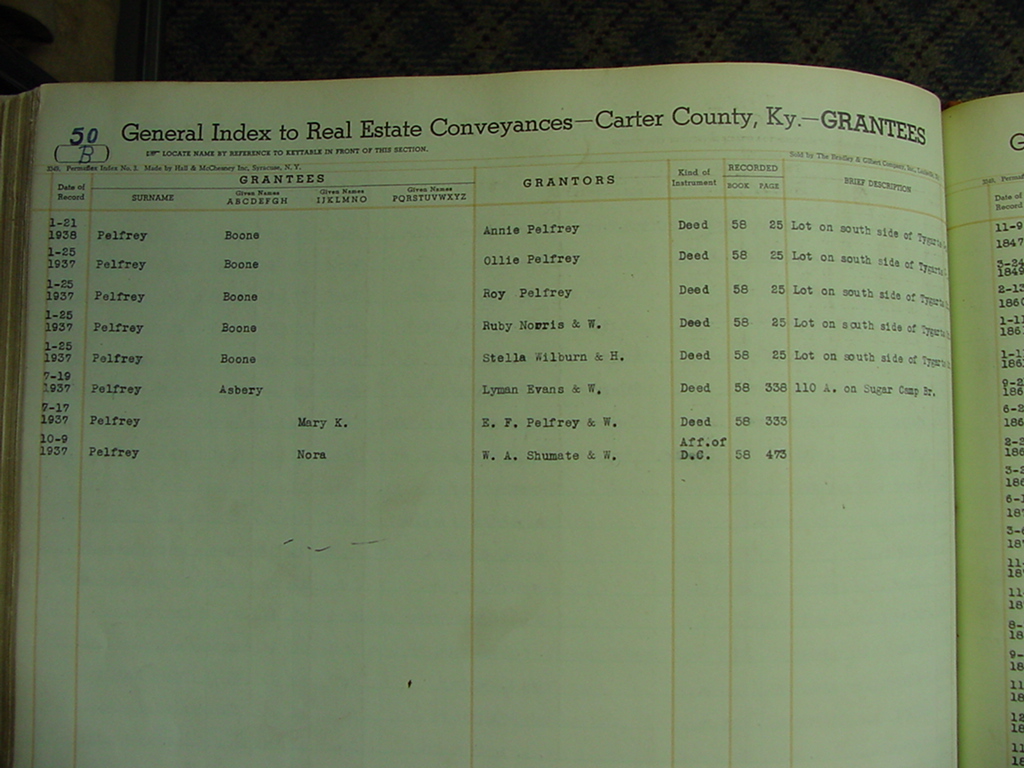 50
B
General Index to Real Estate Conveyances—Carter County, Ky.—GRANTEES
LOCATE NAME BY REFERENCE TO KEYTABLE IN FRONT OF THIS SECTION.
Permaflex Index No. 2. Made by Hall & McChesney Inc, Syracuse, N. Y.
Sold by The Bradley & Gilbert Company, Inc.
Date of Record
GRANTEES
SURNAME
Given Names ABCDEFGH
Given Names IJKLMNO
Given Names PQRSTUVWXYZ
GRANTORS
Kind of Instrument
RECORDED
BOOK PAGE
BRIEF DESCRIPTION
1-21
1938 Pelfrey Boone Annie Pelfrey Deed 58 25 Lot on south side of
1-25
1937 Pelfrey Boone Ollie Pelfrey Deed 58 25 Lot on south side of
1-25
1937 Pelfrey Boone Roy Pelfrey Deed 58 25 Lot on south side of
1-25
1937 Pelfrey Boone Ruby Norris & W. Deed 58 25 Lot on south side of
1-25
1937 Pelfrey Boone Stella Wilburn & H. Deed 58 25 Lot on south side of
7-19
1937 Pelfrey Asbery Lyman Evans & W. Deed 58 338 110 A. on Sugar Camp Br.
7-17
1937 Pelfrey Mary K. E. F. Pelfrey & W. Deed 58 333
10-9
1937 Pelfrey Nora W. A. Shumate & W. Aff.of D.C. 58 473
G
Date of
Record
11-9
1847
3-24
1849
2-13
1-11
1-1
9-2
6-2
2-2
3-2
6-1
3-6
11-
18
11-
18
8-
18
9-
18
11
18
12
18
11
18